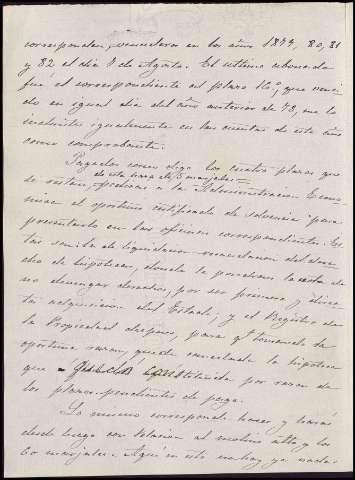 corresponden, vencederos en los años 1879, 80, 81
y 82 el dia 8 de Agosto. El ultimo abonado
fué el correspondiente al plazo 16º, que venci-
do en igual dia del año anterior de 78, va la
incluido igualmente en las cuentas de este año
como comprobante.
Pagados como digo los cuatro plazos que
de esta finca de 5 marjales
restan, pedirás a la Administracion Econó-
mica el oportuno certificado de solvencia para
presentarlo en las oficinas correspondientes. Es-
tas son la de liquidacion del dere-
cho de hipotecas, donde le pondrán la nota de
no devengar derechos, por ser primera y direc-
ta adquisicion del Estado; y el Registro de
la Propiedad despues, para qe tomando la
oportuna razon, quede cancelada la hipoteca
que quedó constituida por razon de
los plazos pendientes de pago.
Lo mismo corresponde hacer y harás
desde luego con relacion al molino alto y los
60 marjales. Aqui en esto no hay ya nada